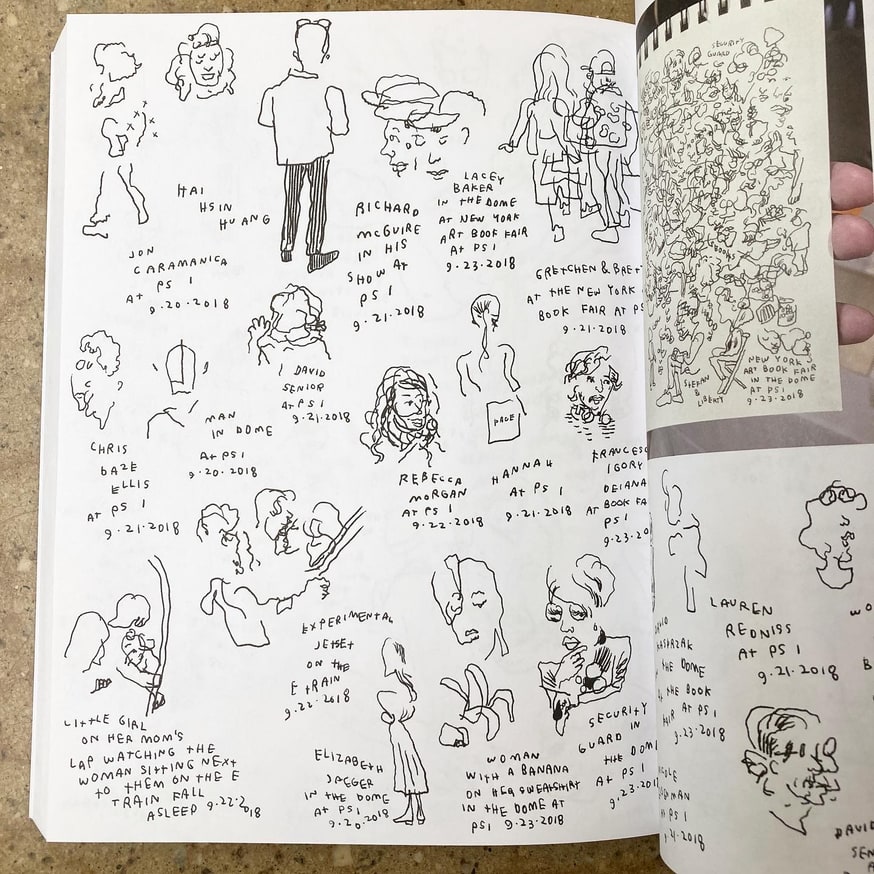 HAI
HSIN
HUANG
JON
CARAMANICA
AT PS 1
9.20.2018
RICHARD
McGUIRE
IN HIS
SHOW AT
PS 1
9.21.2018
LACEY
BAKER
IN THE DOME
AT NEW YORK
ART BOOK FAIR
AT PS 1
9.23.2018
GRETCHEN & BRETT
AT THE NEW YORK
BOOK FAIR AT PS
9.21.2018
CHRIS
DAZE
ELLIS
AT PS 1
9.21.2018
MAN
IN DOME
AT PS 1
9.20.2018
DAVID
SENIOR
AT PS 1
9.21.2018
REBECCA
MORGAN
AT PS 1
9.22.2018
PAGE
HANNAH
AT PS 1
9.21.2018
FRANCESC
IGORY
DEIANA
AT BOOK FA
PS 1
9.23.20
LITTLE GIRL
ON HER MOM'S
LAP WATCHING THE
WOMAN SITTING NEXT
TO THEM ON THE E
TRAIN FALL
ASLEEP 9.22.2018
EXPERIMENTAL
JETSET
ON THE
E TRAIN
9.22.2018
ELIZABETH
JAEGER
IN THE DOME
AT PS 1
9.20.2018
WOMAN
WITH A BANANA
ON HER SWEATSHIRT
IN THE DOME AT
PS 1 9.23.2018
SECURITY
GUARD IN
THE DOME
AT PS 1
9.23.201
SECURITY
GUARD
BOOKS
STEFAN
&
LIBERTY
NEW YORK
ART BOOK FAIR
IN THE DOME
AT PS 1
9.23.2018
LAUREN
REDNISS
AT PS 1
9.21.2018
THE DOME
THE BOOK
FAIR AT PS 1
9.23.2018
AT PS 1
9.21.2018
WO
B
DAVID
SEN